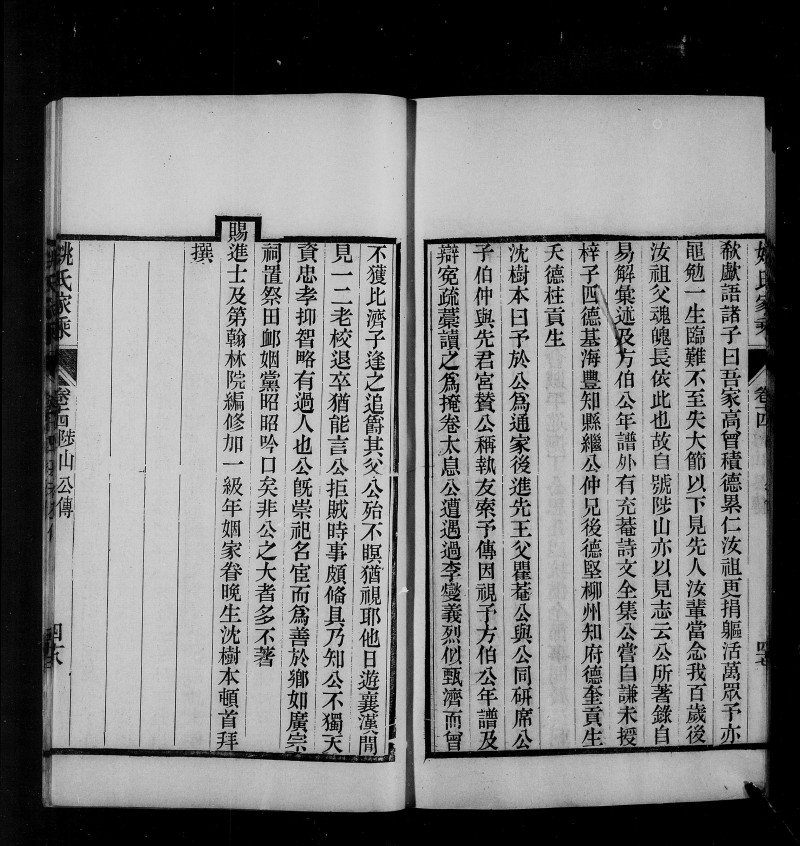 姚氏家乘
卷十四
欷歔語諸子曰吾家高曾積德累仁汝祖更捐軀活萬眾予亦
黽勉一生臨難不至失大節以下見先人汝輩當念我百歲後
汝祖父魂魄長依此也故自號陟山亦以見志云公所著錄自
易解彙述及方伯公年譜外有充菴詩文全集公嘗自謙未授
梓子四德基海豐知縣繼公仲兄後德堅柳州知府德奎貢生
天德柱貢生
沈樹本曰予於公爲通家後進先王父瞿菴公與公同硏席公
子伯仲與先君宮贊公稱執友索予傳因視予方伯公年譜及
辯寃疏藁讀之爲掩卷太息公遭遇過李燮義烈似甄濟而曾
不獲比濟子逢之追爵其父公殆不瞑猶視耶他日遊襄漢間
見一二老校退卒猶能言公拒賊時事頗偹具乃知公不獨天
資忠孝抑智略有過人也公旣崇祀名宦而爲善於鄉如廣宗
祠置祭田衈姻黨昭昭吟口矣非公之大者多不著
賜進士及第翰林院編修加一級年姻家眷晚生沈樹本頓首拜
撰
姚氏家乘
卷十四陟山公傳